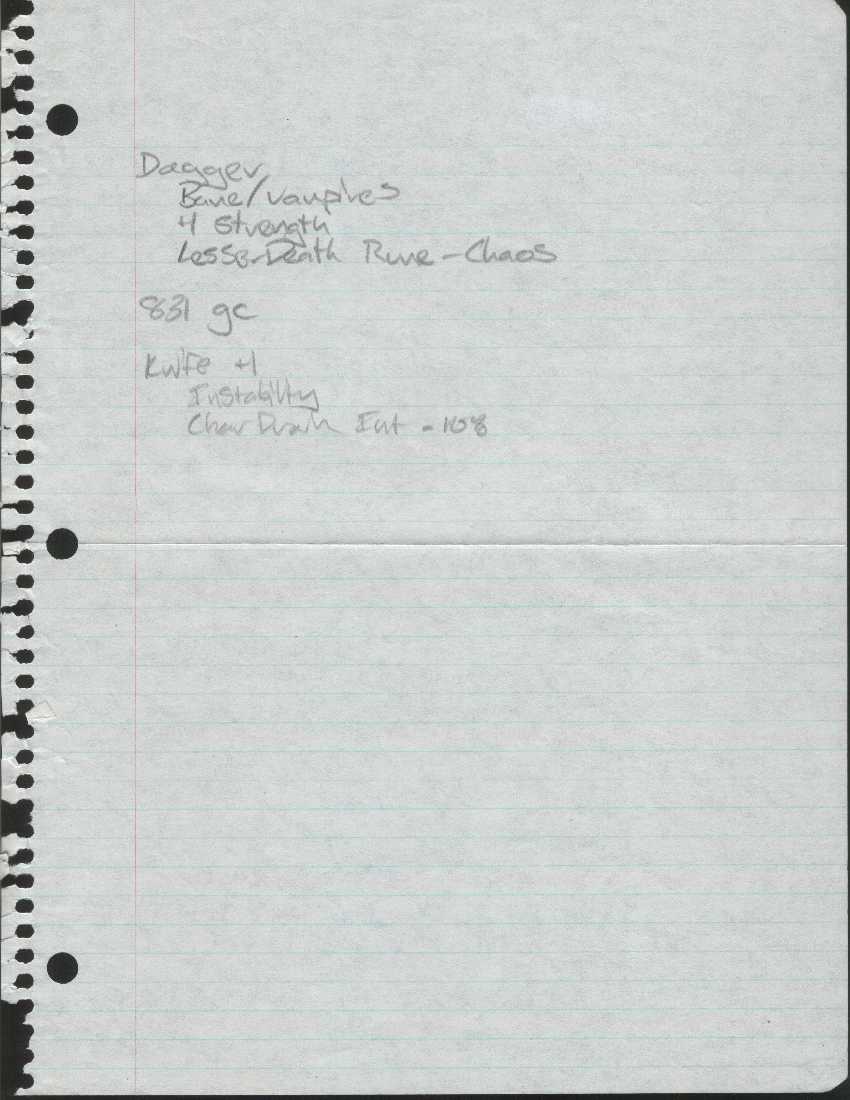 Dagger
Bane/Vampires
+1 Strength
Lesser Death Rune - Chaos
831 gc
Knife +1
Instability
Char Drain Int -